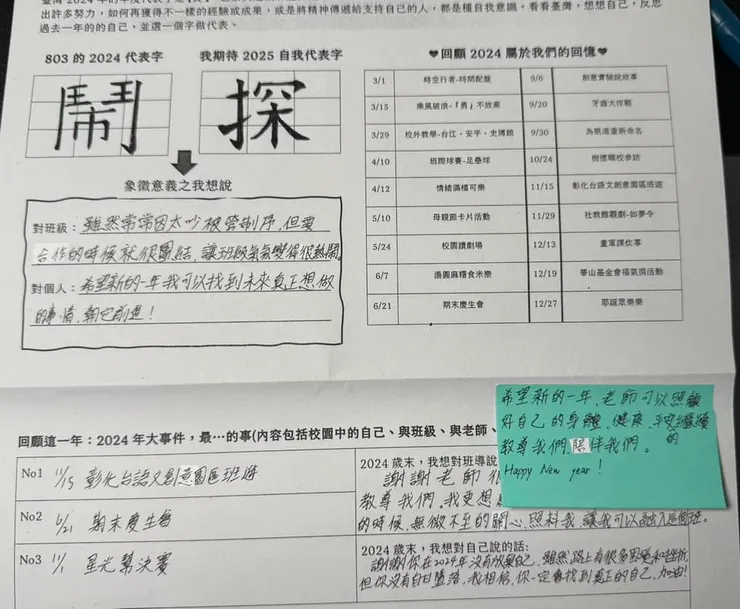 出許多努力，如何再獲得不一樣的經驗或成果，或是將精神傳遞給支持自己的人，都是種自我意識。看看臺灣，想想自己，反思
過去一年的的自己，並選一個字做代表。
803 的 2024 代表字
我期待 2025 自我代表字
鬧
探
象徵意義之我想說
對班級：雖然常常因太吵被管制序，但要
合作的時候就很團結，讓班級氣氛變得很熱鬧。
對個人：希望新的一年我可以找到未來真正想做
的事情，朝它前進！
❤回顧 2024 屬於我們的回憶❤
3/1 時空行者-時間配盤 9/6 創意實驗說故事
3/15 乘風破浪-「勇」不放棄 9/20 牙齒大作戰
3/29 校外教學-台江、安平、史博館 9/30 為親道重新命名
4/10 班際球賽-足壘球 10/24 樹德職校參訪
4/12 情緒滿檔可樂 11/15 彰化台語文創意園區班遊
5/10 母親節卡片活動 11/29 社教館觀劇-如夢令
5/24 校園讀劇場 12/13 童軍課炊事
6/7 湯圓麻糬食米樂 12/19 華山基金會福氣捐活動
6/21 期末慶生會 12/27 耶誕眾樂樂
希望新的一年，老師可以照顧
好自己的身體，健康、平安的繼續
教導我們、陪伴我們。
Happy New year！
回顧這一年：2024 年大事件，最…的事(內容包括校園中的自己、與班級、與老師、
No1 11/15 彰化台語文創意園區班遊
No2 6/21 期末慶生會
No3 11/1 星光幫決賽
2024 歲末，我想對班導說
謝謝老師很
教導我們，我更想
的時候，無微不至的關心、照料我，讓我可以融入這個班。
2024 歲末，我想對自己說的話：
謝謝你在2024年沒有放棄自己，雖然路上有很多困難和挫折，
但你沒有自甘墮落，我相信，你一定會找到真正的自己，加油！